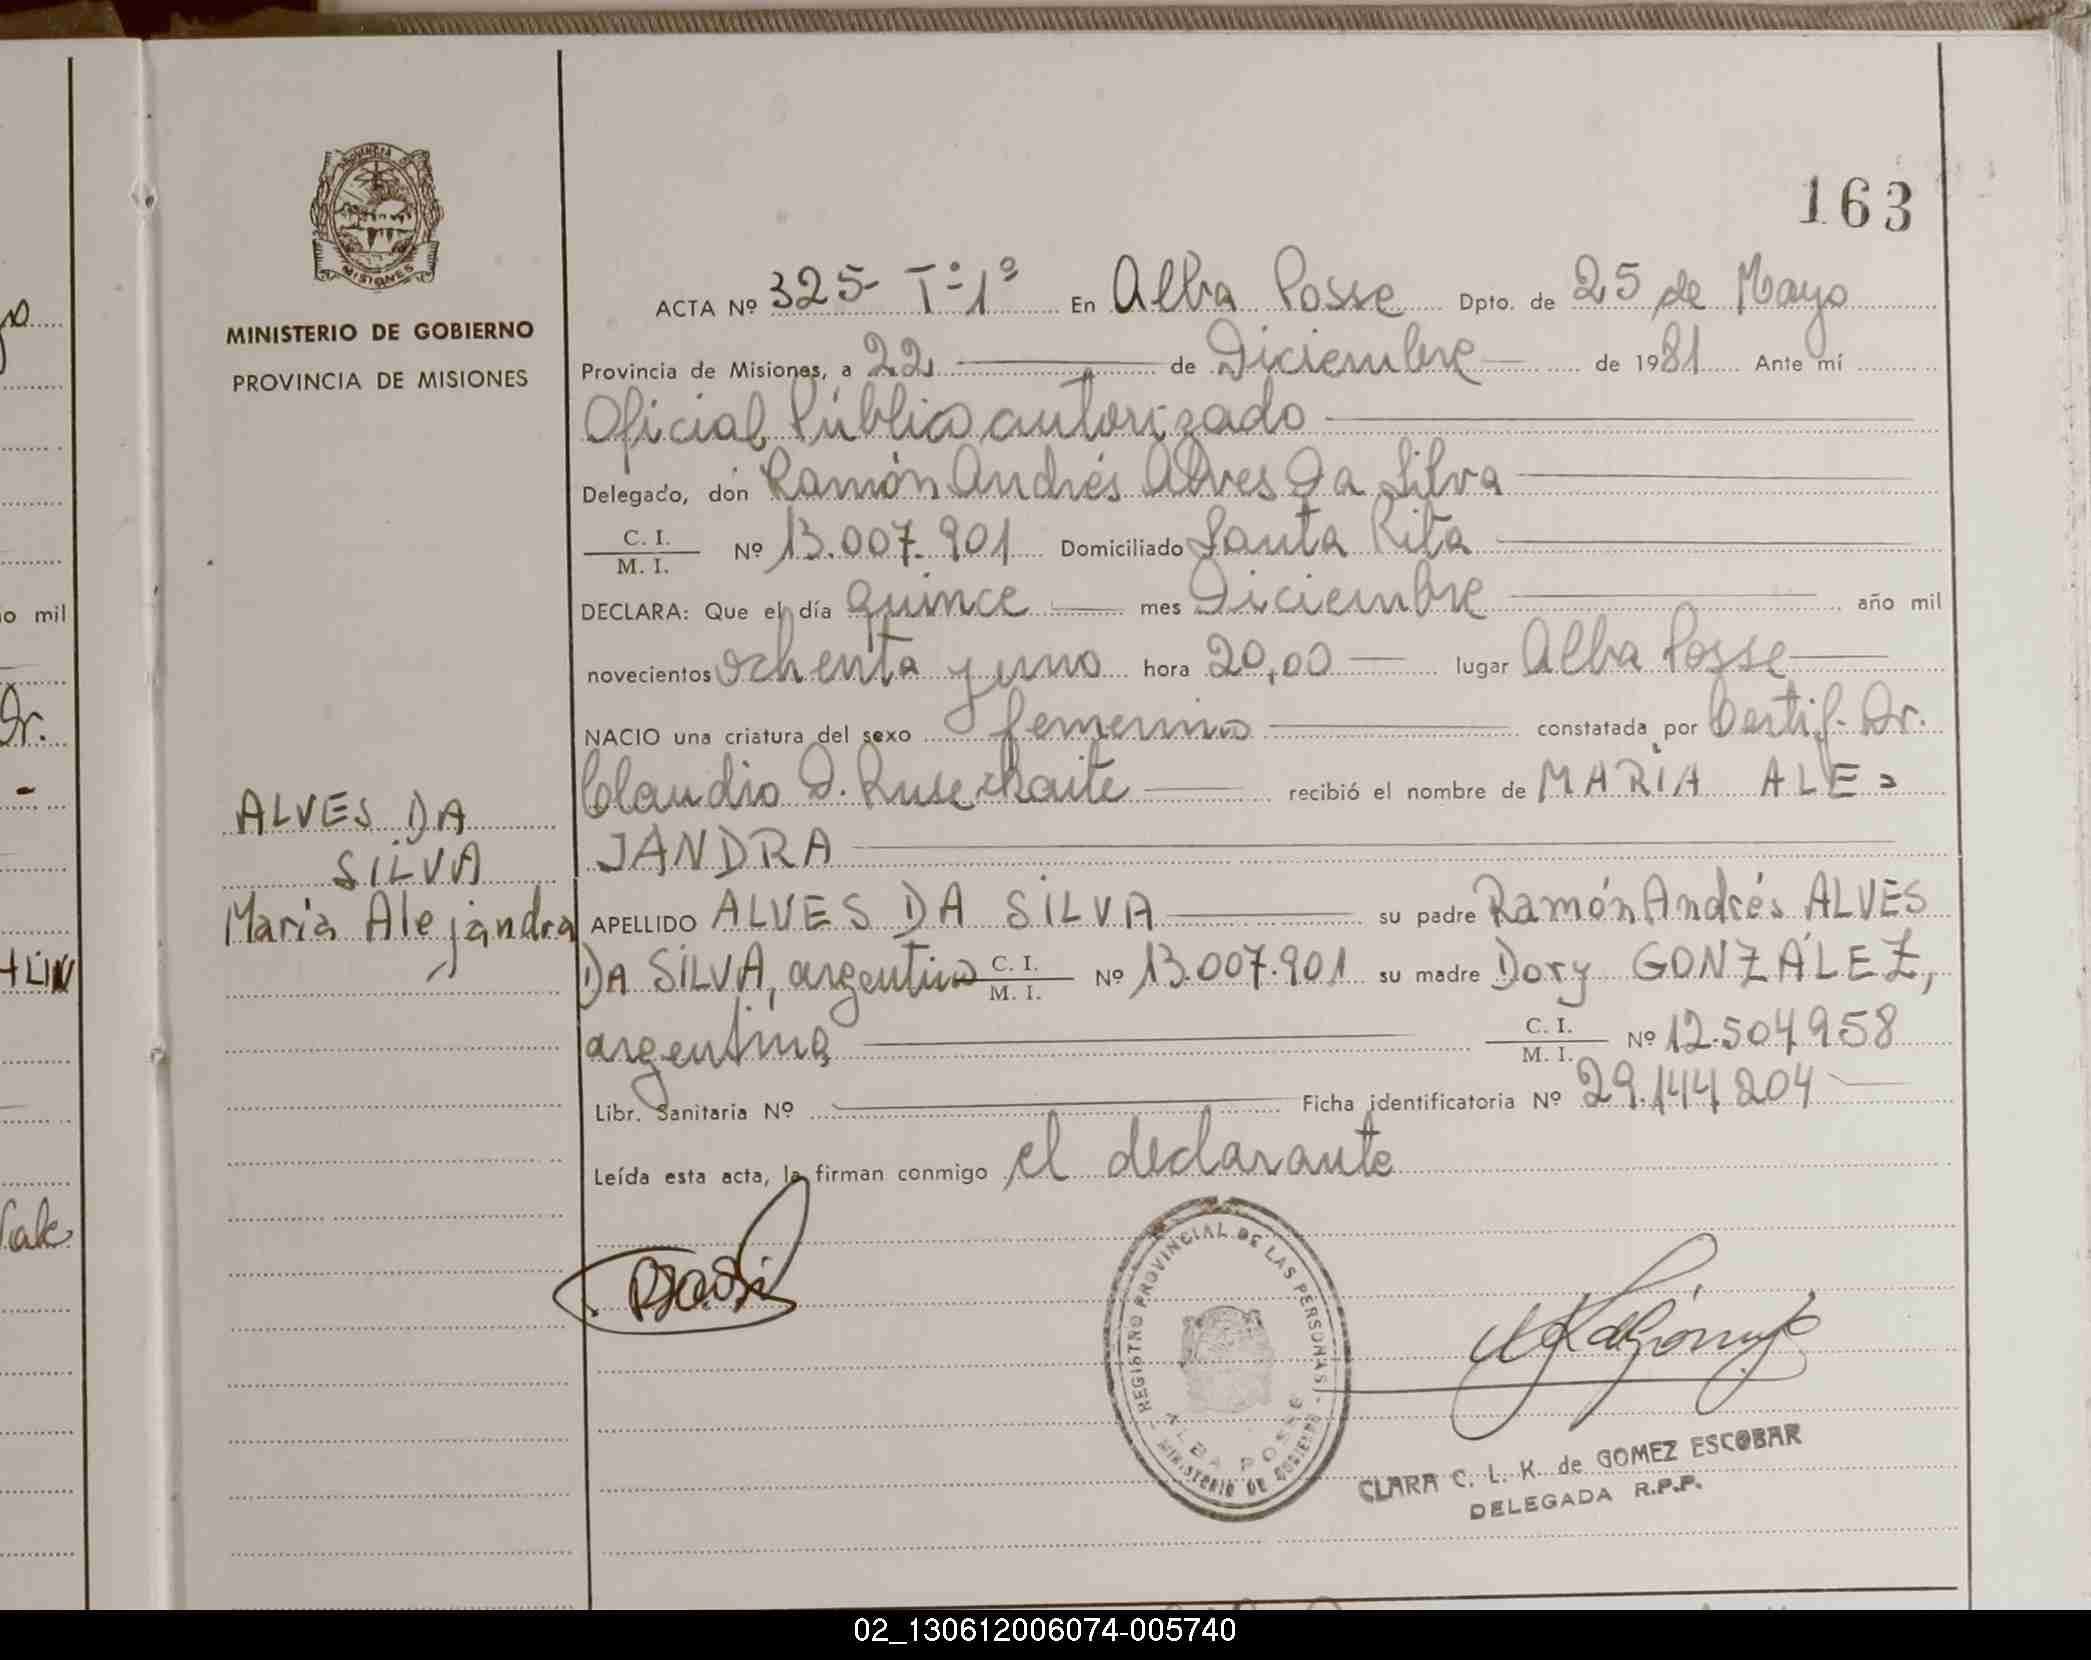 163
MINISTERIO DE GOBIERNO
PROVINCIA DE MISIONES
ACTA Nº 325- Tº-1º En Alba Posse Dpto. de 25 de Mayo
Provincia de Misiones, a 22 de Diciembre de 1981 Ante mí
Oficial Público autorizado
Delegado, don Ramón Andrés Alves Da Silva
C. I.
M. I. Nº 13.007.901 Domiciliado Santa Rita
DECLARA: Que el día quince mes Diciembre año mil
novecientos ochenta y uno hora 20,00 lugar Alba Posse
NACIO una criatura del sexo femenino constatada por Certif. Dr.
Claudio D. recibió el nombre de MARIA ALE=
JANDRA
ALVES DA
SILVA
Maria Alejandra
APELLIDO ALVES DA SILVA su padre Ramón Andrés ALVES
DA SILVA, argentino C. I.
M. I. Nº 13.007.901 su madre Dory GONZÁLEZ,
argentina C. I.
M. I. Nº 12.504.958
Libr. Sanitaria Nº Ficha identificatoria Nº 29.144.204
Leída esta acta, la firman conmigo el declarante
REGISTRO PROVINCIAL DE LAS PERSONAS
ALBA POSSE
MINISTERIO DE GOBIERNO
CLARA C. L. K. de GOMEZ ESCOBAR
DELEGADA R.P.P.
02_130612006074-005740